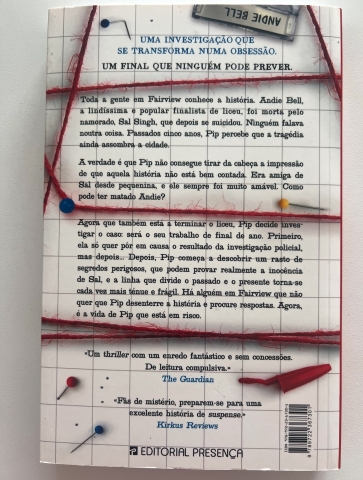 ANDIE BELL
UMA INVESTIGAÇÃO QUE
SE TRANSFORMA NUMA OBSESSÃO.
UM FINAL QUE NINGUÉM PODE PREVER.
Toda a gente em Fairview conhece a história. Andie Bell,
a lindíssima e popular finalista de liceu, foi morta pelo
namorado, Sal Singh, que depois se suicidou. Ninguém falava
noutra coisa. Passados cinco anos, Pip percebe que a tragédia
ainda assombra a cidade.
A verdade é que Pip não consegue tirar da cabeça a impressão
de que aquela história não está bem contada. Era amiga de
Sal desde pequenina, e ele sempre foi muito amável. Como
pode ter matado Andie?
Agora que também está a terminar o liceu, Pip decide inves-
tigar o caso: será o seu trabalho de final de ano. Primeiro,
ela só quer pôr em causa o resultado da investigação policial,
mas depois... Depois, Pip começa a descobrir um rasto de
segredos perigosos, que podem provar realmente a inocência
de Sal, e a linha que divide o passado e o presente torna-se
cada vez mais ténue e frágil. Há alguém em Fairview que não
quer que Pip desenterre a história e procure respostas. Agora,
é a vida de Pip que está em risco.
«Um thriller com um enredo fantástico e sem concessões.
De leitura compulsiva.»
The Guardian
«Fãs de mistério, preparem-se para uma
excelente história de suspense.»
Kirkus Reviews
EDITORIAL PRESENÇA
9 789722 367301